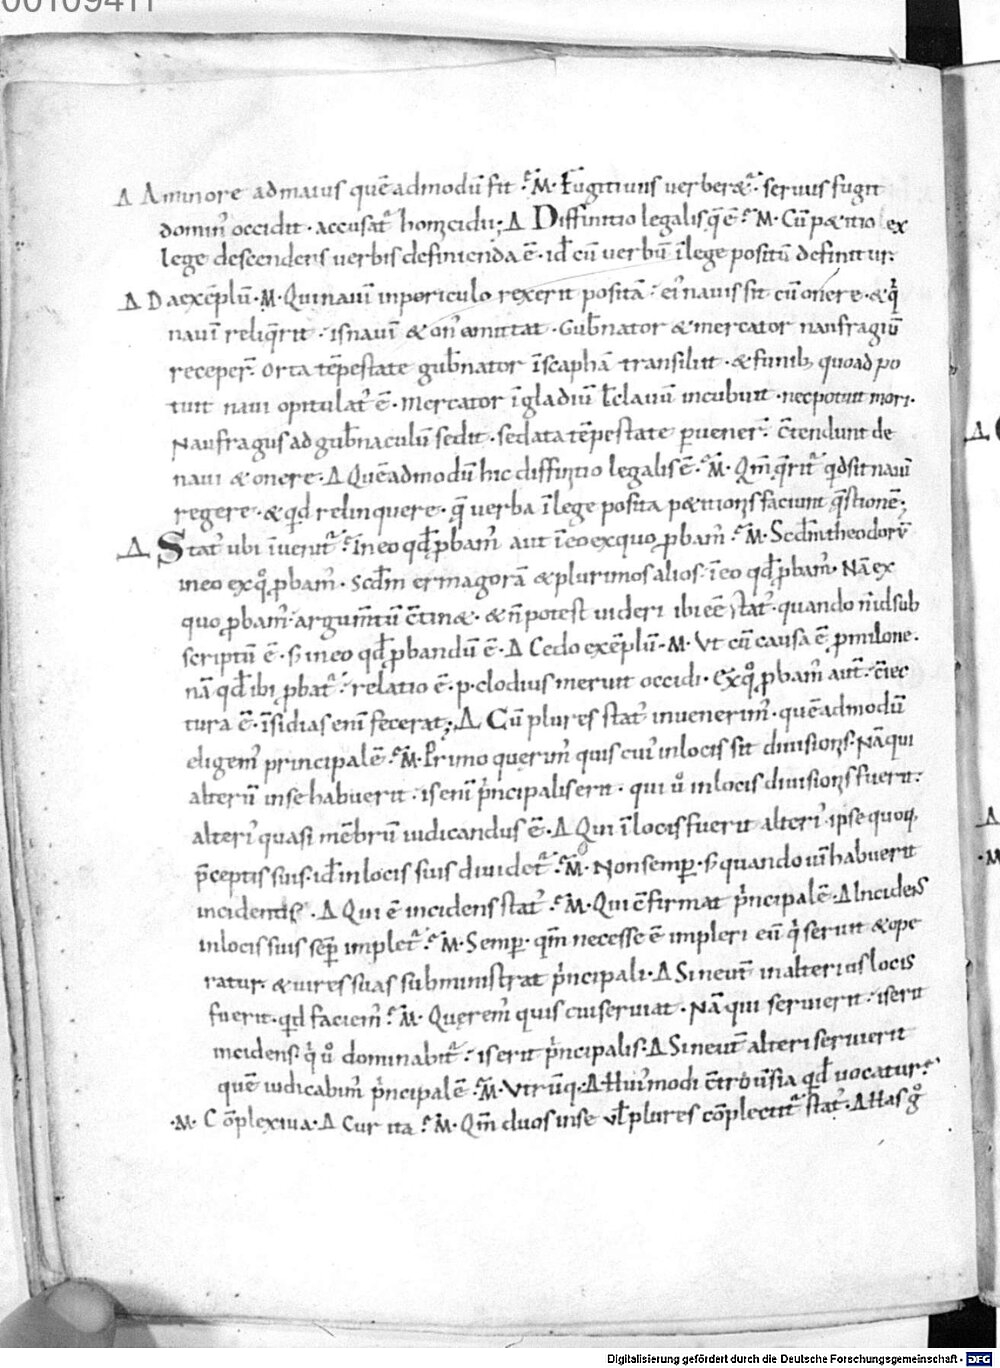 00109411
Δ A minore ad maius quēadmodū fit · M · Fugitiuus uerberat᷒ · seruus fugit
dominū occidit · accusat᷒ homicidii; Δ Diffinitio legalis q̄ ē · M · Cū partitio ex
lege descendens uerbis definienda ē · id ē cū uerbū ī lege positū definitur:
Δ Da exēplū · M · Qui nauī in periculo rexerit positā · ei᷒ nauis sit cū onere · & q̇
nauī reliq̄rit · is nauī & on᷒ amittat · Gub̄nator & mercator naufragiū
receper̄ · Orta tēpestate gub̄nator ī scaphā transiliit · & funib; quoad po
tuit naui opitulat᷒ ē · mercator ī gladiū ł clauū incubuit · nec potuit mori ·
Naufragus ad gub̄naculū sedit · sedata tēpestate puener̄ · c̄tendunt de
naui & onere · Δ Quēadmodū hic diffinitio legalis ē · M · Qm̄ q̄rit᷒ qd sit nauī
regere · & qd relinquere · q̄ uerba ī lege posita partitions faciunt q̄stionē;
Δ Stat᷒ ubi īuenit᷒ · In eo qd̄ ꝓbam᷒ aut ī eo ex quo ꝓbam᷒ · M · Scdm̄ theodorū
in eo ex qͦ ꝓbam᷒ · Scdm̄ ermagorā & plurimos alios · ī eo qd̄ ꝓbam᷒ · Nā ex
quo ꝓbam᷒ · argum̄tū c̄tinet · & n̄ potest uideri ibi eē stat᷒ · quando n̄ id sub
scriptū ē · s; in eo qd̄ ꝓbandū ē · Δ Cedo exēplū · M · Vt cū causa ē p milone ·
nā qd̄ ibi ꝓbat᷒ · relatio ē · p · clodius meruit occidi · Ex qͦ ꝓbam᷒ aut̄ · c̄iec
tura ē · īsidias enī fecerat; Δ Cū plures stat᷒ inuenerim᷒ · quēadmodū
eligem᷒ principalē · M · Primo querim᷒ quis cui᷒ in locis sit diuisions · Nā qui
alterū in se habuerit · is enī p̄ncipalis erit · qui ů in locis diuisions fuerit:
alteri᷒ quasi mēbrū iudicandus ē · Δ Qui ī locis fuerit alteri᷒ · ipse quoq,
p̄ceptis suis · id ē in locis suis diuidet᷒ · M · Non semp · s; quando uī habuerit
incidentis · Δ Qui ē incidens stat᷒ · M · Qui c̄firmat p̄ncipalē · Δ Incidens
in locis suis sēp implet᷒ · M · Semp · qm̄ necesse ē impleri eū q̇ seruit & ope
ratur · & uires suas subministrat p̄ncipali · Δ Si neut̄ in alterius locis
fuerit · qd faciem᷒ · M · Querem᷒ quis cui seruiat · Nā qui seruierit · is erit
incidens · q̇ ů dominabit᷒ · is erit p̄ncipalis · Δ Si neut̄ alteri seruierit
quē iudicabim᷒ p̄ncipalē · M · Vtrūq · Δ Hui᷒modi c̄trouersia qd̄ uocatur ·
· M · Cōplexiua · Δ Cur ita · M · Qm̄ duos in se uł plures cōplectit᷒ stat᷒ · Δ Has gͦ
Digitalisierung gefördert durch die Deutsche Forschungsgemeinschaft - DFG